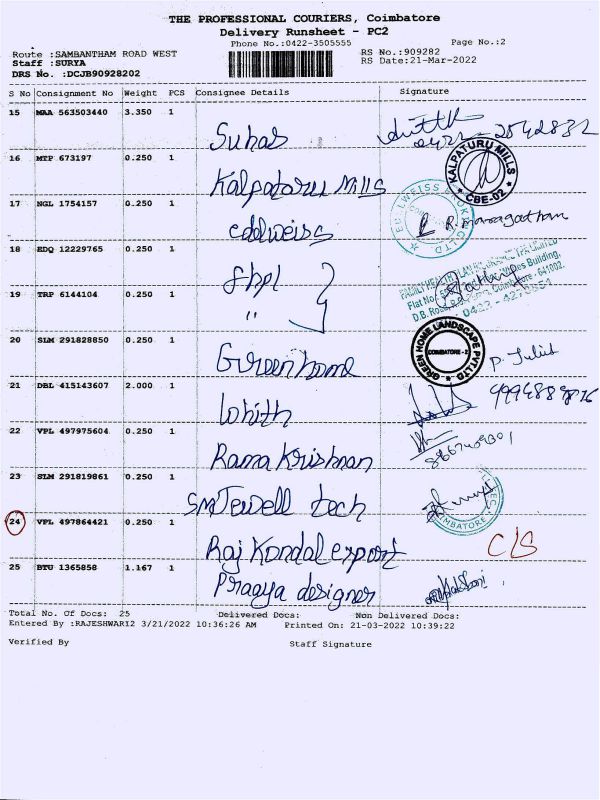 THE PROFESSIONAL COURIERS, Coimbatore
Delivery Runsheet - PC2
Phone No.:0422-3505555 Page No.:2
Route :SAMBANTHAM ROAD WEST RS No.:909282
Staff :SURYA RS Date:21-Mar-2022
DRS No. :DCJB90928202
S No Consignment No Weight PCS Consignee Details Signature
15 MAA 563503440 3.350 1
Suhas
0422 - 2542832
16 MTP 673197 0.250 1
Kalpataru Mills
KALPATURU MILLS
CBE-02
17 NGL 1754157 0.250 1
edelweiss
R. Maragatham
18 EDQ 12229765 0.250 1
fhpl
19 TRP 6144104 0.250 1
"
20 SLM 291828850 0.250 1
Green home
GREEN HOME LANDSCAPE PVT LTD
COIMBATORE - 2
P. Juliet
21 DBL 415143607 2.000 1
Lohith
22 VPL 497975604 0.250 1
Rama Krishnan
23 SLM 291819861 0.250 1
SM Jewell tech
24 VPL 497864421 0.250 1
Raj Kondal export
C/S
25 BTU 1365858 1.167 1
Pragya designer
Total No. Of Docs: 25 Delivered Docs: Non Delivered Docs:
Entered By :RAJESHWARI2 3/21/2022 10:36:26 AM Printed On: 21-03-2022 10:39:22
Verified By Staff Signature